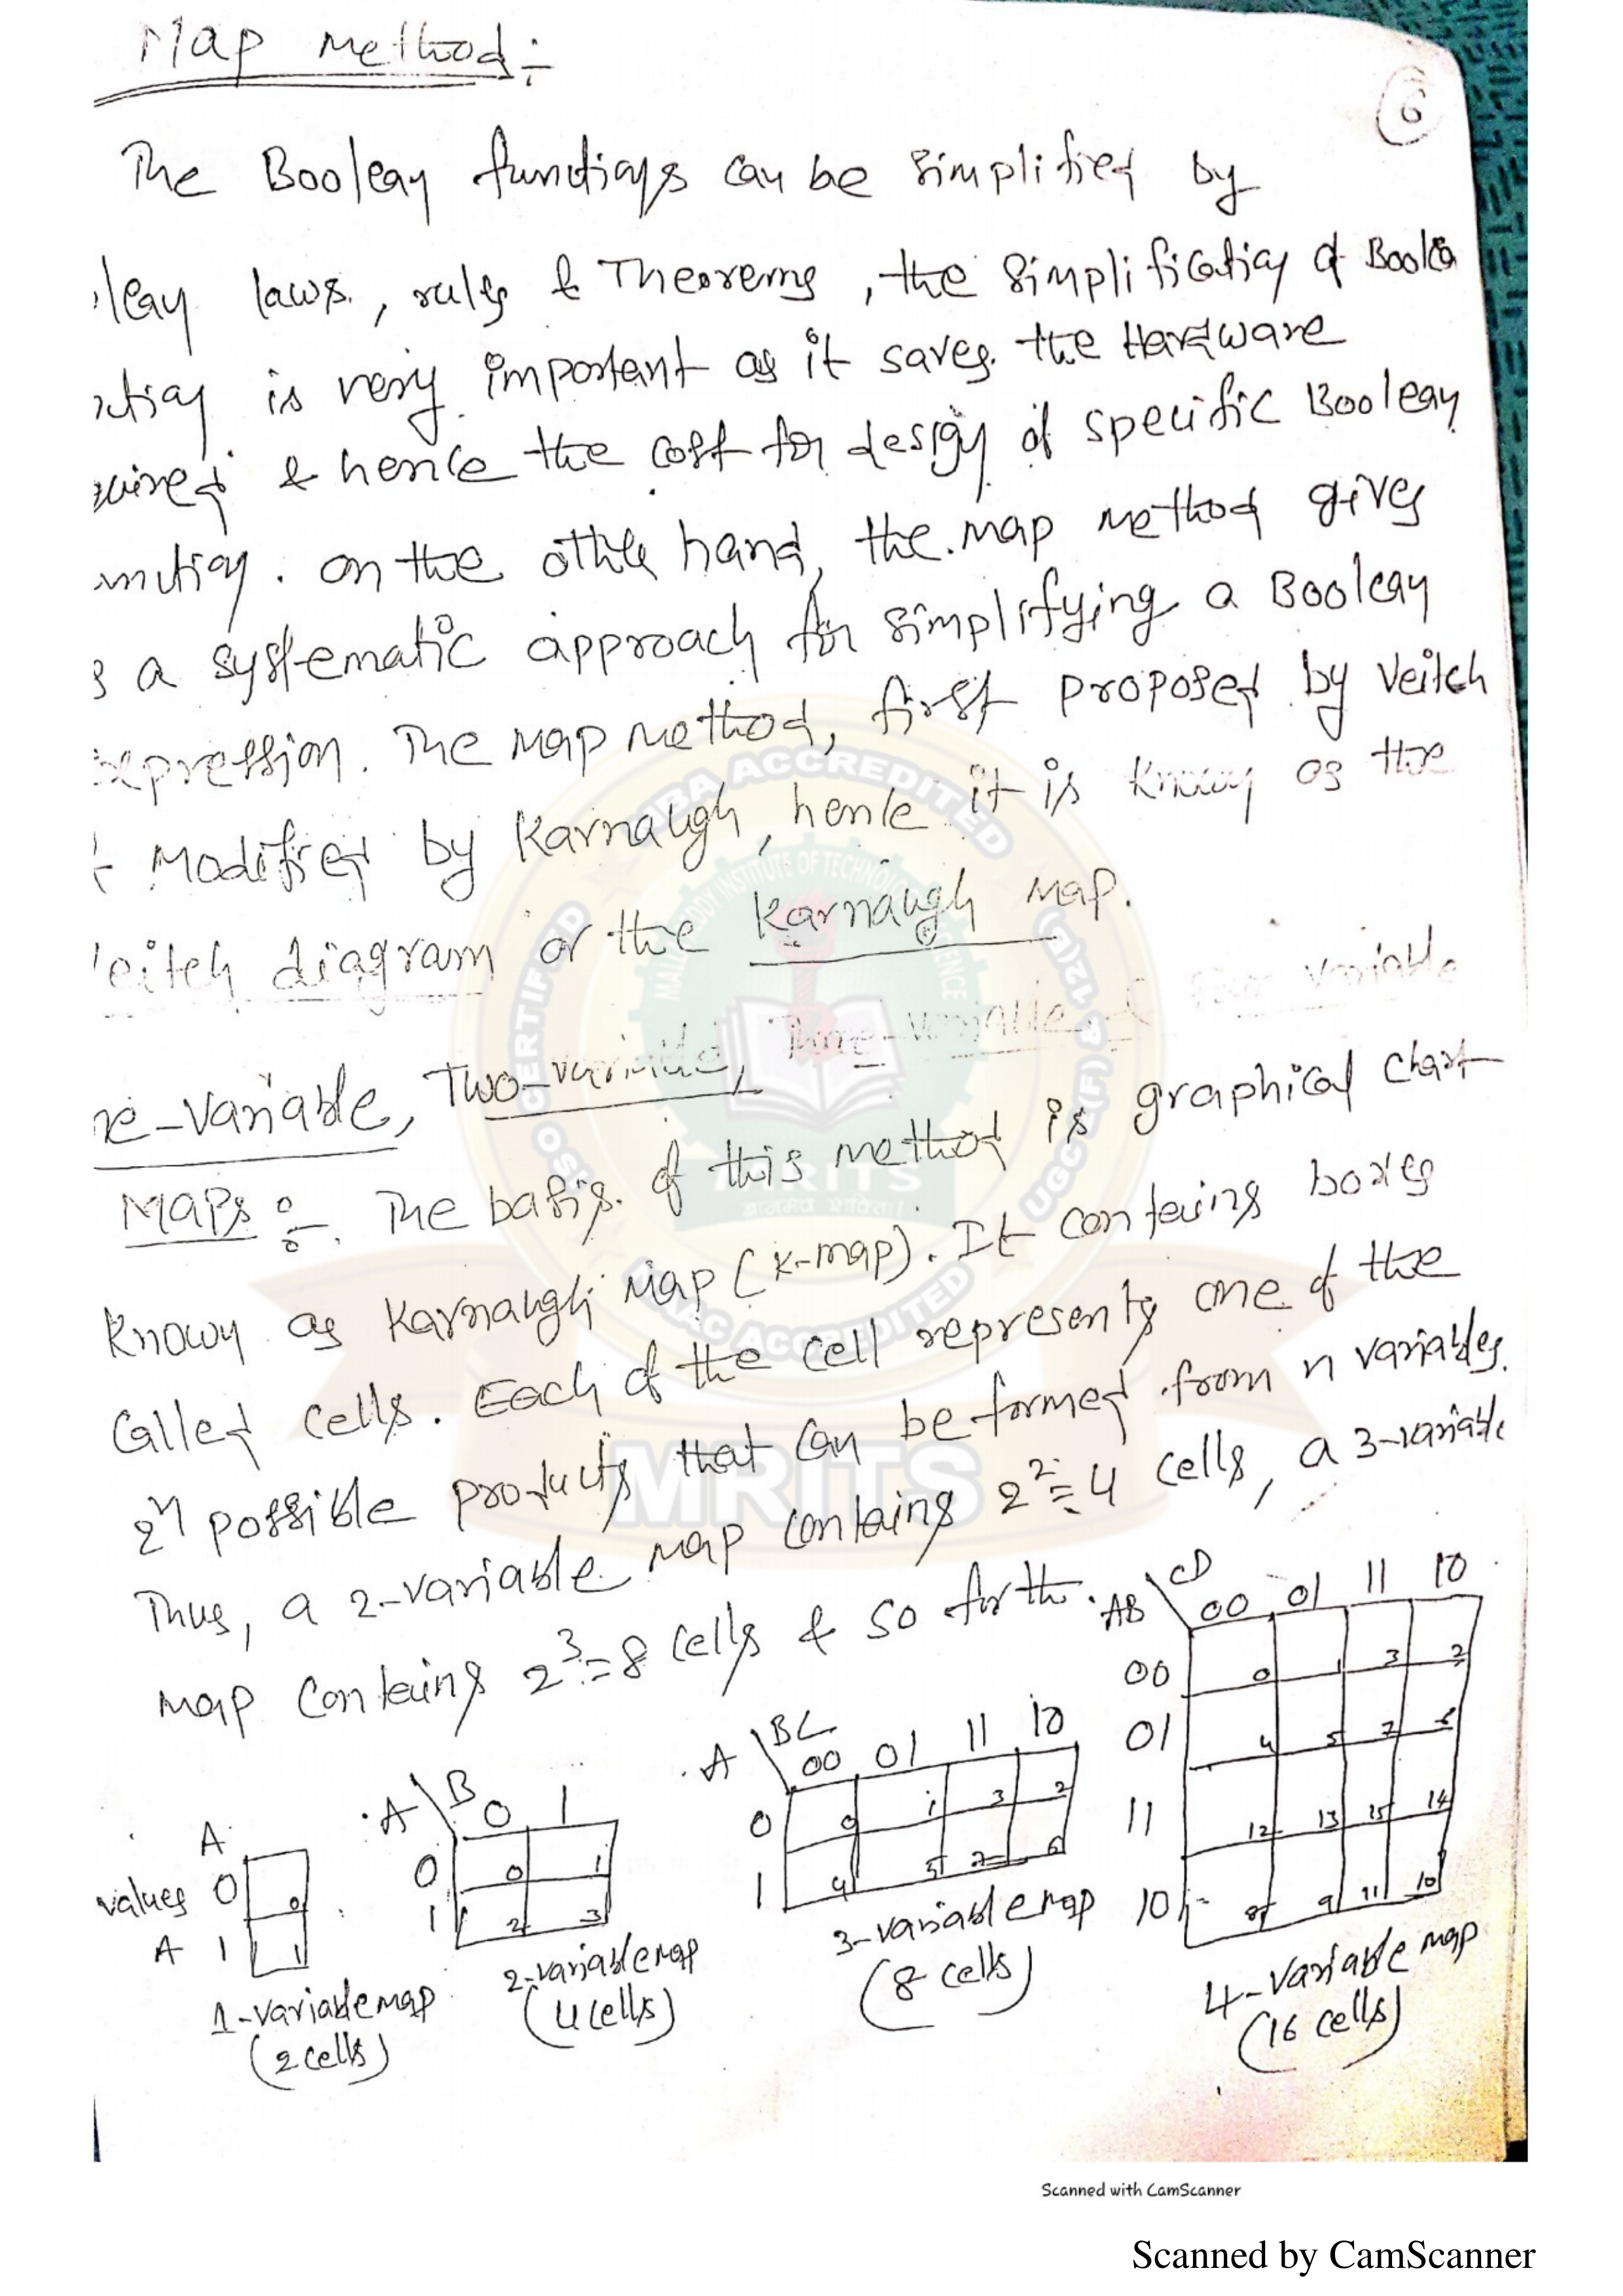 Map Method:-
6
The Boolean functions can be simplified by
lean laws, rules & Theorems, the simplification of Boolea
nction is very important as it saves the Hardware
quired & hence the cost for design of specific Boolean
unction. on the other hand, the map method gives
s a systematic approach for simplifying a Boolean
expression. The map method, first proposed by Veitch
& Modified by Karnaugh, hence it is known as the
Veitch diagram or the Karnaugh Map.
ne-variable, Two-variable, Three-variable & Four variable
MAPs :- The basis of this method is graphical chart
known as Karnaugh Map (K-map). It contains boxes
called cells. Each of the cell represents one of the
2^n possible products that can be formed from n variables.
Thus, a 2-variable map contains 2^2=4 cells, a 3-variable
map contains 2^3=8 cells & so forth.
A
values 0 0
A 1 1
1-variable map
(2 cells)
A \ B 0 1
0 0 1
1 2 3
2-variable map
(4 cells)
A \ BC 00 01 11 10
0 0 1 3 2
1 4 5 7 6
3-variable map
(8 cells)
AB \ CD 00 01 11 10
00 0 1 3 2
01 4 5 7 6
11 12 13 15 14
10 8 9 11 10
4-variable map
(16 cells)
NBA ACCREDITED
MALLA REDDY INSTITUTE OF TECHNOLOGY SCIENCE
CERTIFIED
UGC 2(f) & 12(B)
MRITS
NAAC ACCREDITED
MRITS
Scanned with CamScanner
Scanned by CamScanner